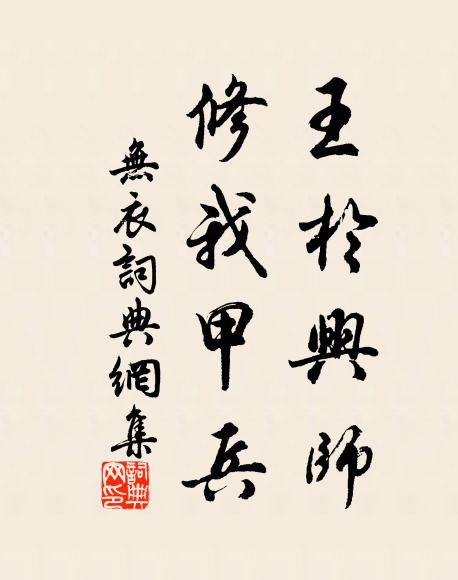 王於興師
修我甲兵
無衣詞典網集
詞典网印